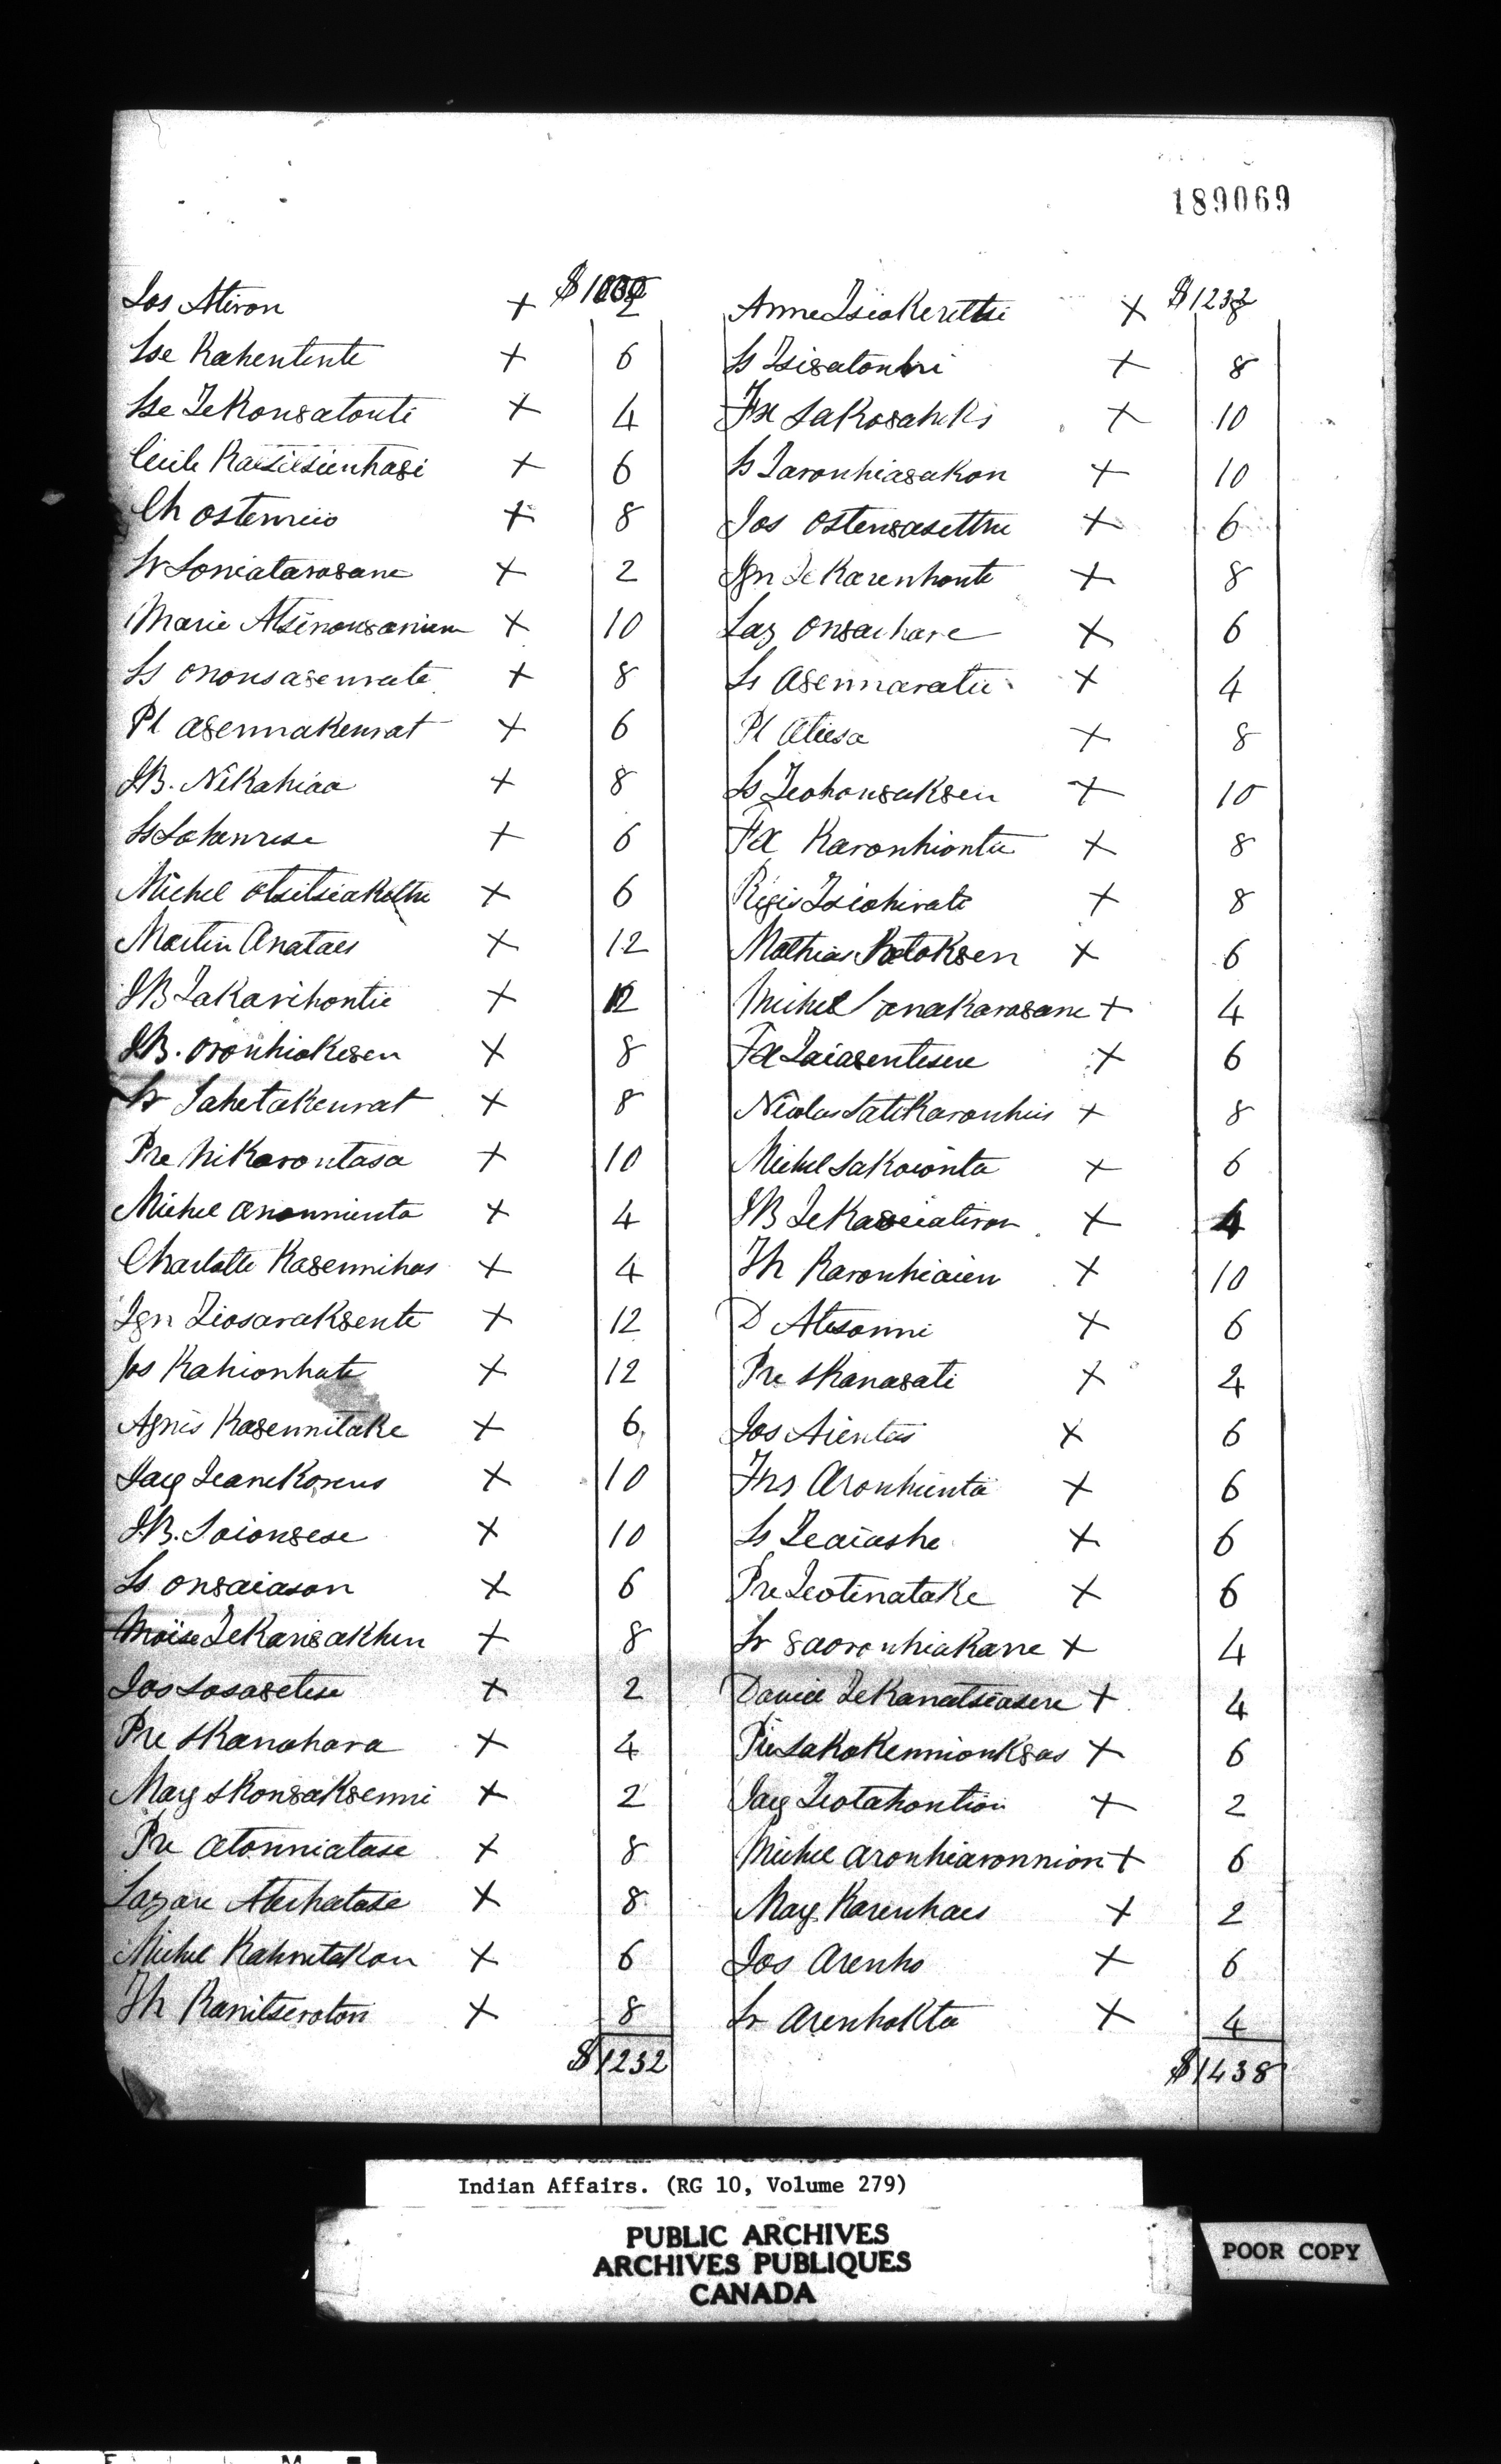 189069
$1002
Jos Ativon + 2
Lse Kahentente + 6
Lse TeKonsatonti + 4
Cécile Katsitsienhasi + 6
Ch ostenreio + 8
Lr Soniatarosane + 2
Marie Atsenonsanien + 10
Ls ononsasenrate + 8
Pl asennakenrat + 6
JB. NiKahiaa + 8
Ls Sohenrese + 6
Michel otsitsiaKettu + 6
Martin Anataes + 12
JB TaKarihontie + 12
JB. oronhioKesen + 8
Lr Tahetakenrat + 8
Pre NiKarontasa + 10
Michel anonnienta + 4
Charlotte Kasennihas + 4
Ign TiosaraKsente + 12
Jos Kahionhate + 12
Agnés Kasennitake + 6
Jacq TeaneKorens + 10
JB. Soionsese + 10
Ls onsaiason + 6
Moïse TeKarisakhen + 8
Jos Sosasetese + 2
Pre sKanohara + 4
Marg sKonsaKsenni + 2
Pre atonniatase + 8
Lazare Aterhatase + 8
Michel Kahnetakon + 6
Th Kanitseroton + 8
$1232
$1232
Anne TsioKerettsi + 8
Ls Tsisatonhri + 8
Fx SaKosaheKs + 10
Ls Taronhiasakon + 10
Jos ostensasettu + 6
Ign TeKarenhonte + 8
Laz onsachare + 6
Ls asennaratie + 4
Pl atiesa + 8
Ls TeohonsaKsen + 10
Fx Karonhiontie + 8
Régis Tsiohirate + 8
Mathias RatoKsen + 6
Michel TanaKarasane + 4
Fx Taiasentesere + 6
Nicolas SatiKaronhies + 8
Michel SaKoionta + 6
JB TeKasiatiron + 4
Th Karonhiaien + 10
D Atesonni + 6
Pre sKanasati + 2
Jos Aientas + 6
Frs Aronhienta + 6
Ls Teaiashe + 6
Pre Teotinatake + 6
Lr saoronhiaKane + 4
David TeKanatsiasere + 4
Pre SakoKennionKsas + 6
Jacq Teotahontion + 2
Michel aronhiaronnion + 6
Marg Karenhaes + 2
Jos Arenho + 6
Lr ArenhoKta + 4
$1438
Indian Affairs. (RG 10, Volume 279)
PUBLIC ARCHIVES
ARCHIVES PUBLIQUES
CANADA
POOR COPY